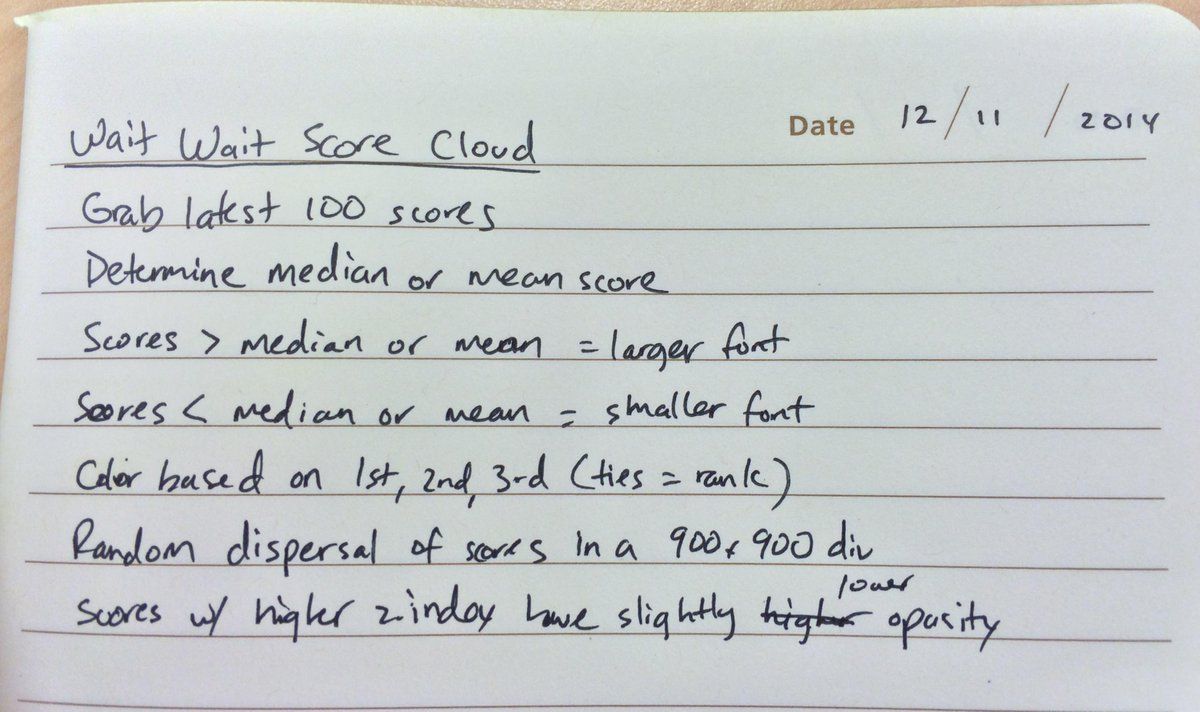 Date 12/11/2014
Wait Wait Score Cloud
Grab latest 100 scores
Determine median or mean score
Scores > median or mean = larger font
Scores < median or mean = smaller font
Color based on 1st, 2nd, 3rd (ties = rank)
Random dispersal of scores in a 900x900 div
lower
Scores w/ higher z-index have slightly higher opacity